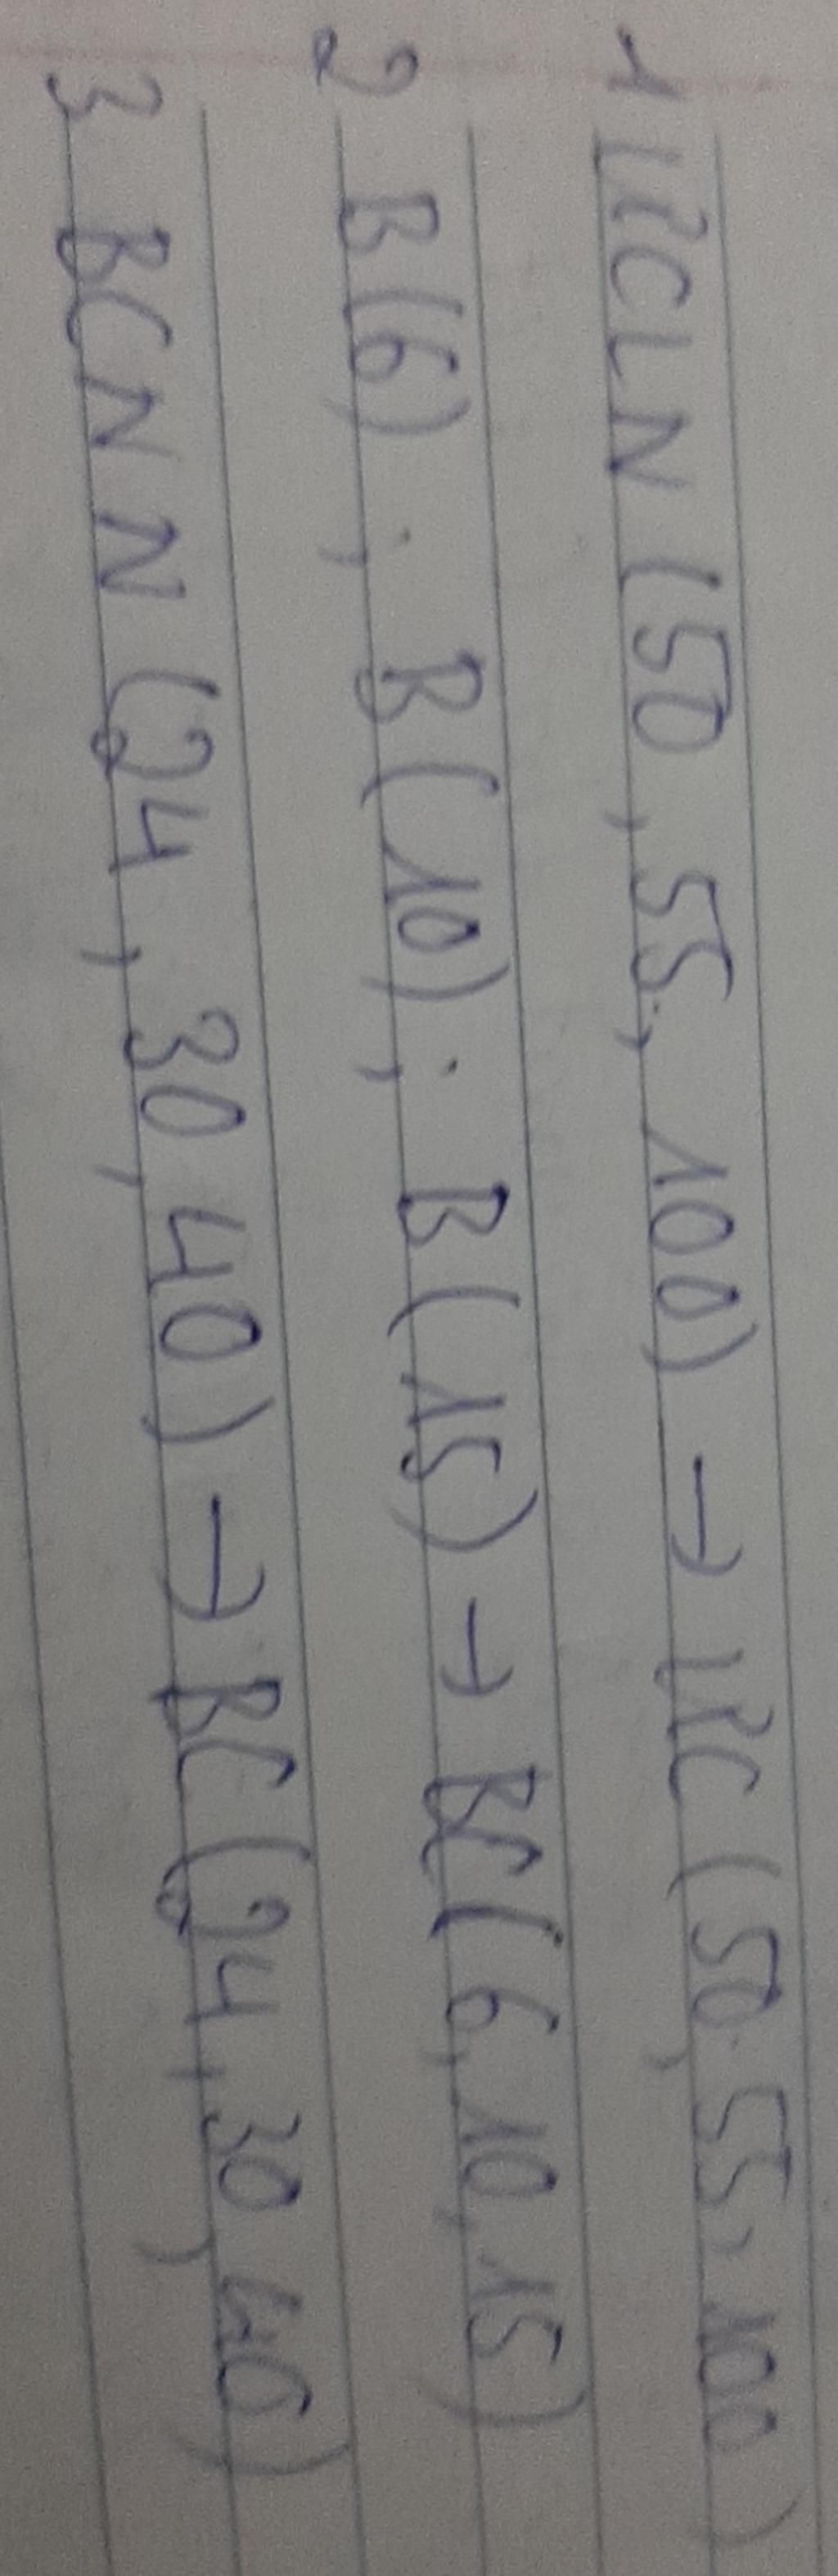 1 ƯCLN (50, 55, 100) → ƯC (50, 55, 100)
2 B(6); B(10); B(15) → BC(6, 10, 15)
3 BCNN (24, 30, 40) → BC (24, 30, 40)